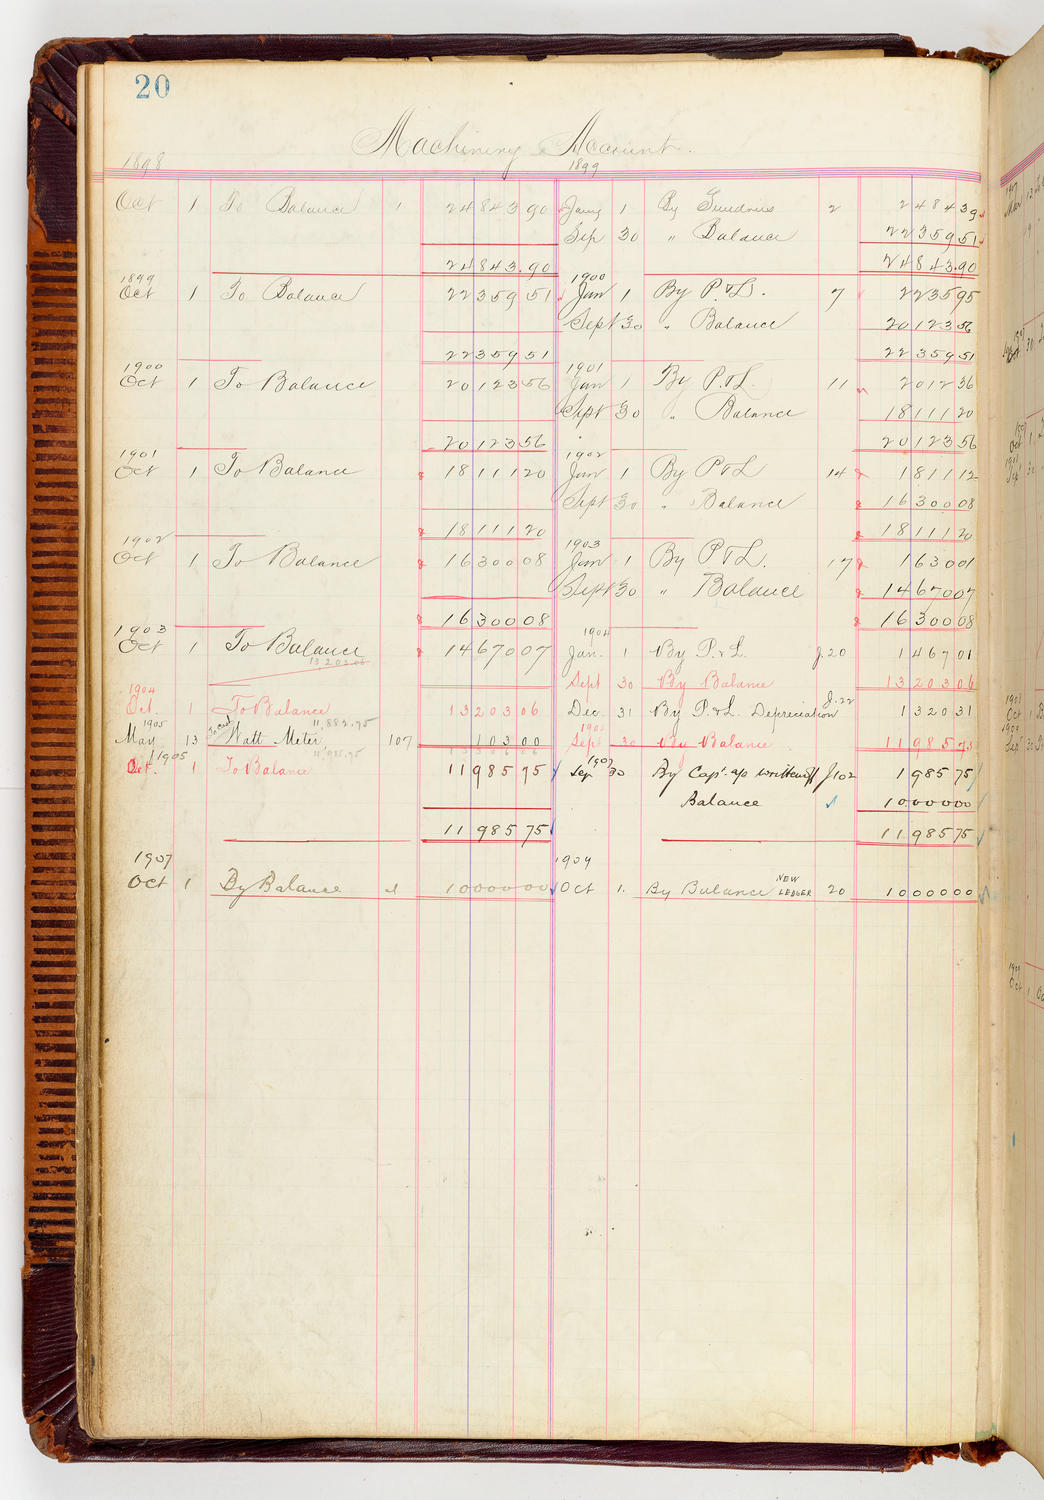 20
Machinery Account.
1898 1899
Oct 1 To Balance 1 24843 90 Jany 1 By Sundries 2 2484 39
Sep 30 " Balance 22359 51
24843.90 24843.90
1899 1900
Oct 1 To Balance 22359 51 Jan 1 By P. & L. 7 2235 95
Sept 30 " Balance 20123 56
22359 51 22359 51
1900 1901
Oct 1 To Balance 20123 56 Jan 1 By P. & L. 11 2012 36
Sept 30 " Balance 18111 20
20123 56 20123 56
1901 1902
Oct 1 To Balance 18111 20 Jan 1 By P & L 14 1811 12
Sept 30 " Balance 16300 08
18111 20 18111 20
1902 1903
Oct 1 To Balance 16300 08 Jan 1 By P & L. 17 1630 01
Sept 30 " Balance 14670 07
16300 08 16300 08
1903 1904
Oct 1 To Balance 14670 07 Jan. 1 By P. & L. J. 20 1467 01
13,203.06
Sept 30 By Balance 13203 06
1904
Oct. 1 To Balance 13203 06 Dec. 31 By P. & L. Depreciation J. 22 1320 31
1905 11,882.75
May 13 Watt Meter 107 103 00 Sept 30 By Balance 11985 75
11,985.75 13306 06
1905 1907
Oct. 1 To Balance 11985 75 Sep 30 By Cap'. ap written off J102 1985 75
Balance 10000 00
11985 75 11985 75
1907 1909
Oct 1 By Balance 10000 00 Oct 1. By Balance NEW LEDGER 20 10000 00